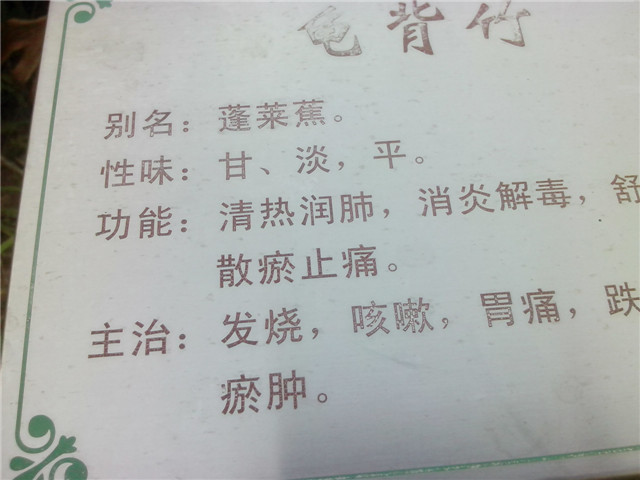 龟背竹
别名：蓬莱蕉。
性味：甘、淡，平。
功能：清热润肺，消炎解毒，舒
散瘀止痛。
主治：发烧，咳嗽，胃痛，跌
瘀肿。